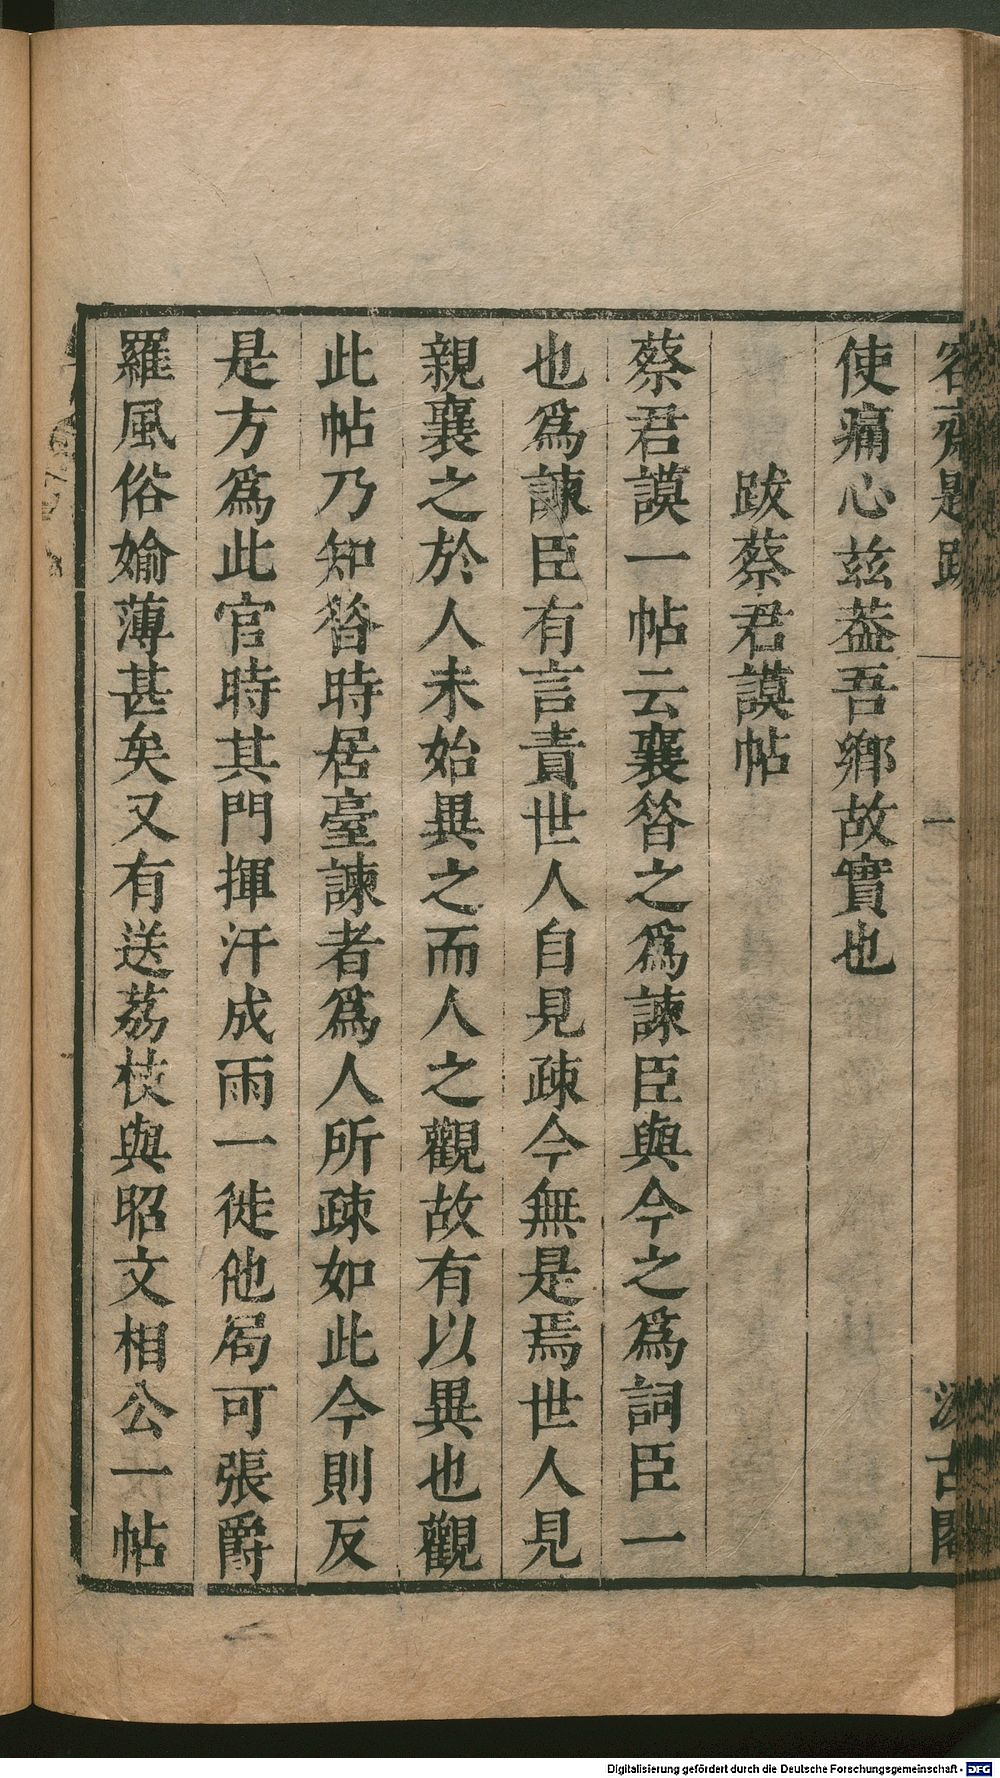 容齋題跋 一 汲古閣
使痛心兹葢吾鄉故實也
跋蔡君謨帖
蔡君謨一帖云襄昝之爲諫臣與今之爲詞臣一
也爲諫臣有言責世人自見疎今無是焉世人見
親襄之於人未始異之而人之觀故有以異也觀
此帖乃知昝時居臺諫者爲人所疎如此今則反
是方爲此官時其門揮汗成雨一徙他局可張爵
羅風俗媮薄甚矣又有送荔枝與昭文相公一帖
Digitalisierung gefördert durch die Deutsche Forschungsgemeinschaft - DFG